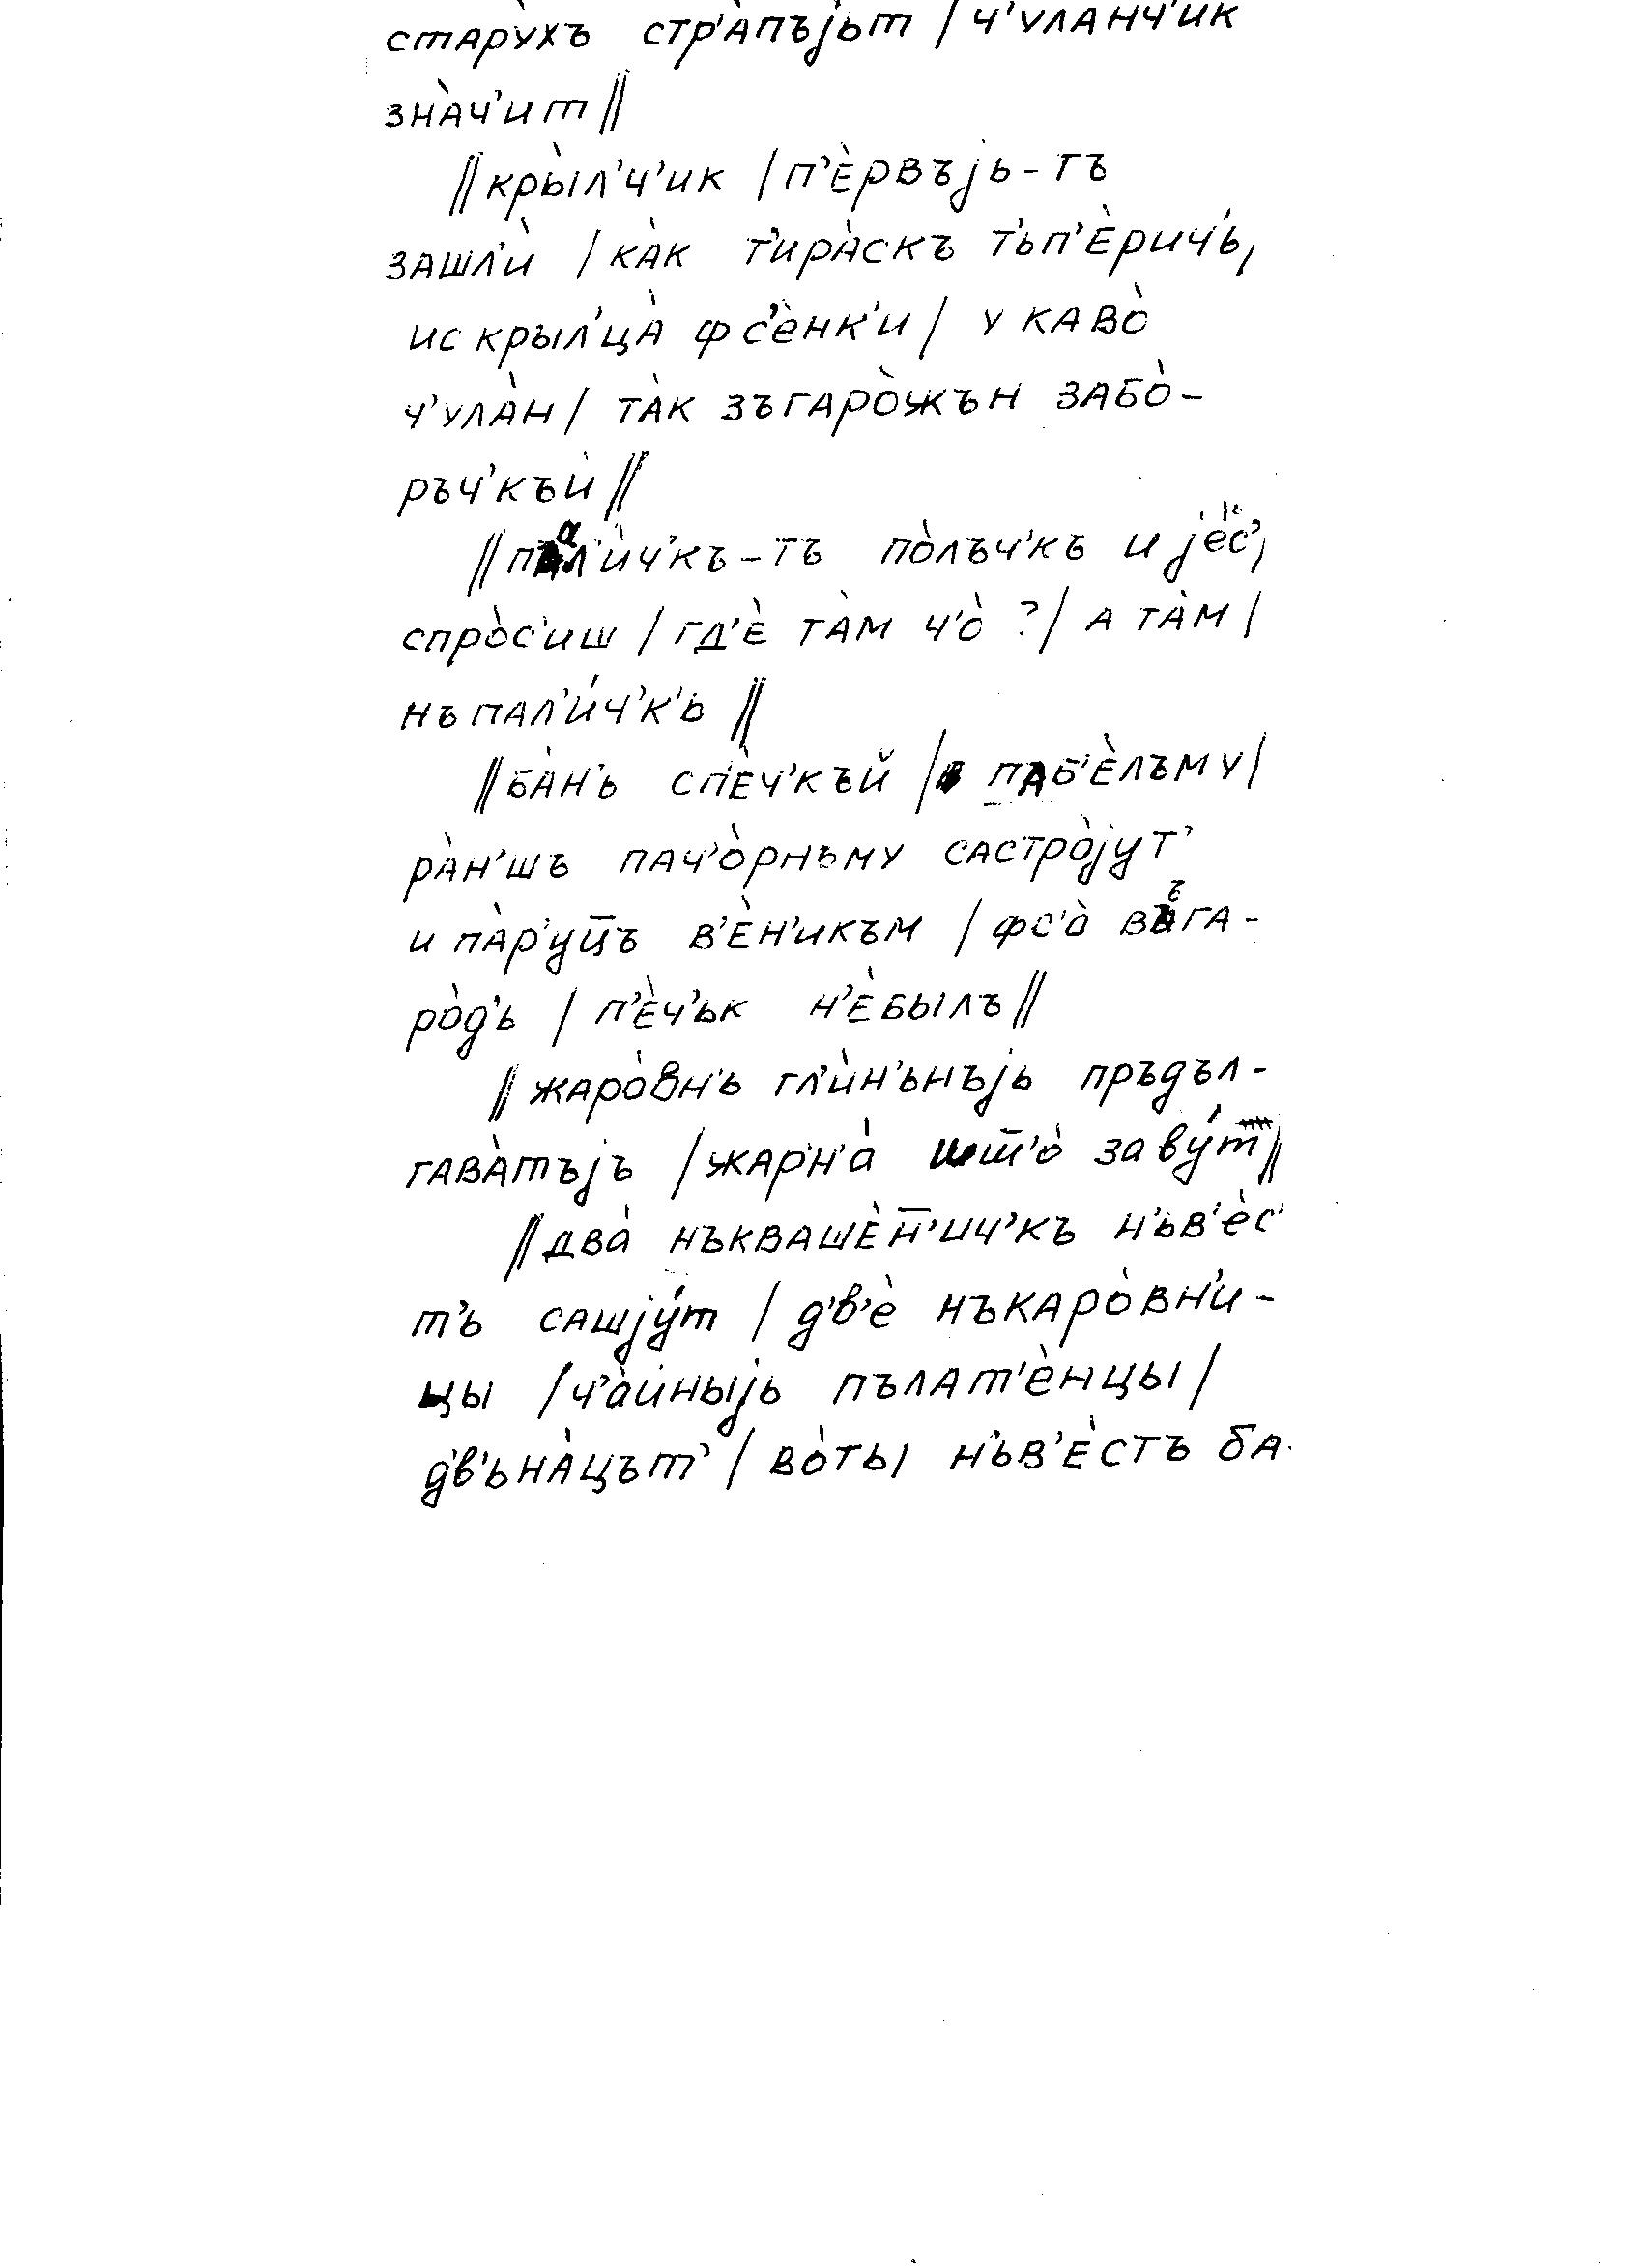 стару̀хъ стр'а̀пъjьт / ч'уланч'ик
зна̀ч'ит //
// кры̀л'ч'ик / п'ѐрвъjь-тъ
зашл'ѝ / ка̀к т'ира̀скъ т'ьп'ѐрич'ь,
ис крыл'ца̀ фс'ѐнк'и / у каво̀
ч'ула̀н / та̀к зъгаро̀жън забо̀-
ръч'къй //
// пал'ѝч'къ-тъ по̀лъч'къ и jѐс',
спро̀с'иш / гд'ѐ та̀м ч'о̀ ? / а та̀м /
нъпал'и́ч'к'ь //
// ба̀н'ь сп'ѐч'къй / паб'ѐлъму /
ра̀н'шъ пач'о̀рнъму састро̀jут'
и па̀р'уц̅ъ в'ѐн'икъм / фс'о̀ въга-
ро̀д'ь / п'ѐч'ьк н'ѐбылъ //
// жаро̀вн'ь гл'ѝн'ьнъjь пръдъл-
гава̀тъjъ / жарн'а̀ ш̅т'о̀ заву́т //
// два̀ нъквашѐн̅'ич'къ н'ьв'ѐс'
т'ь сашjу́т / д'в'ѐ нъкаро̀вн'и-
цы / ч'а̀йныjь пълат'ѐнцы /
д'в'ьна̀цът' / во̀ты н'ьв'ѐстъ ба-